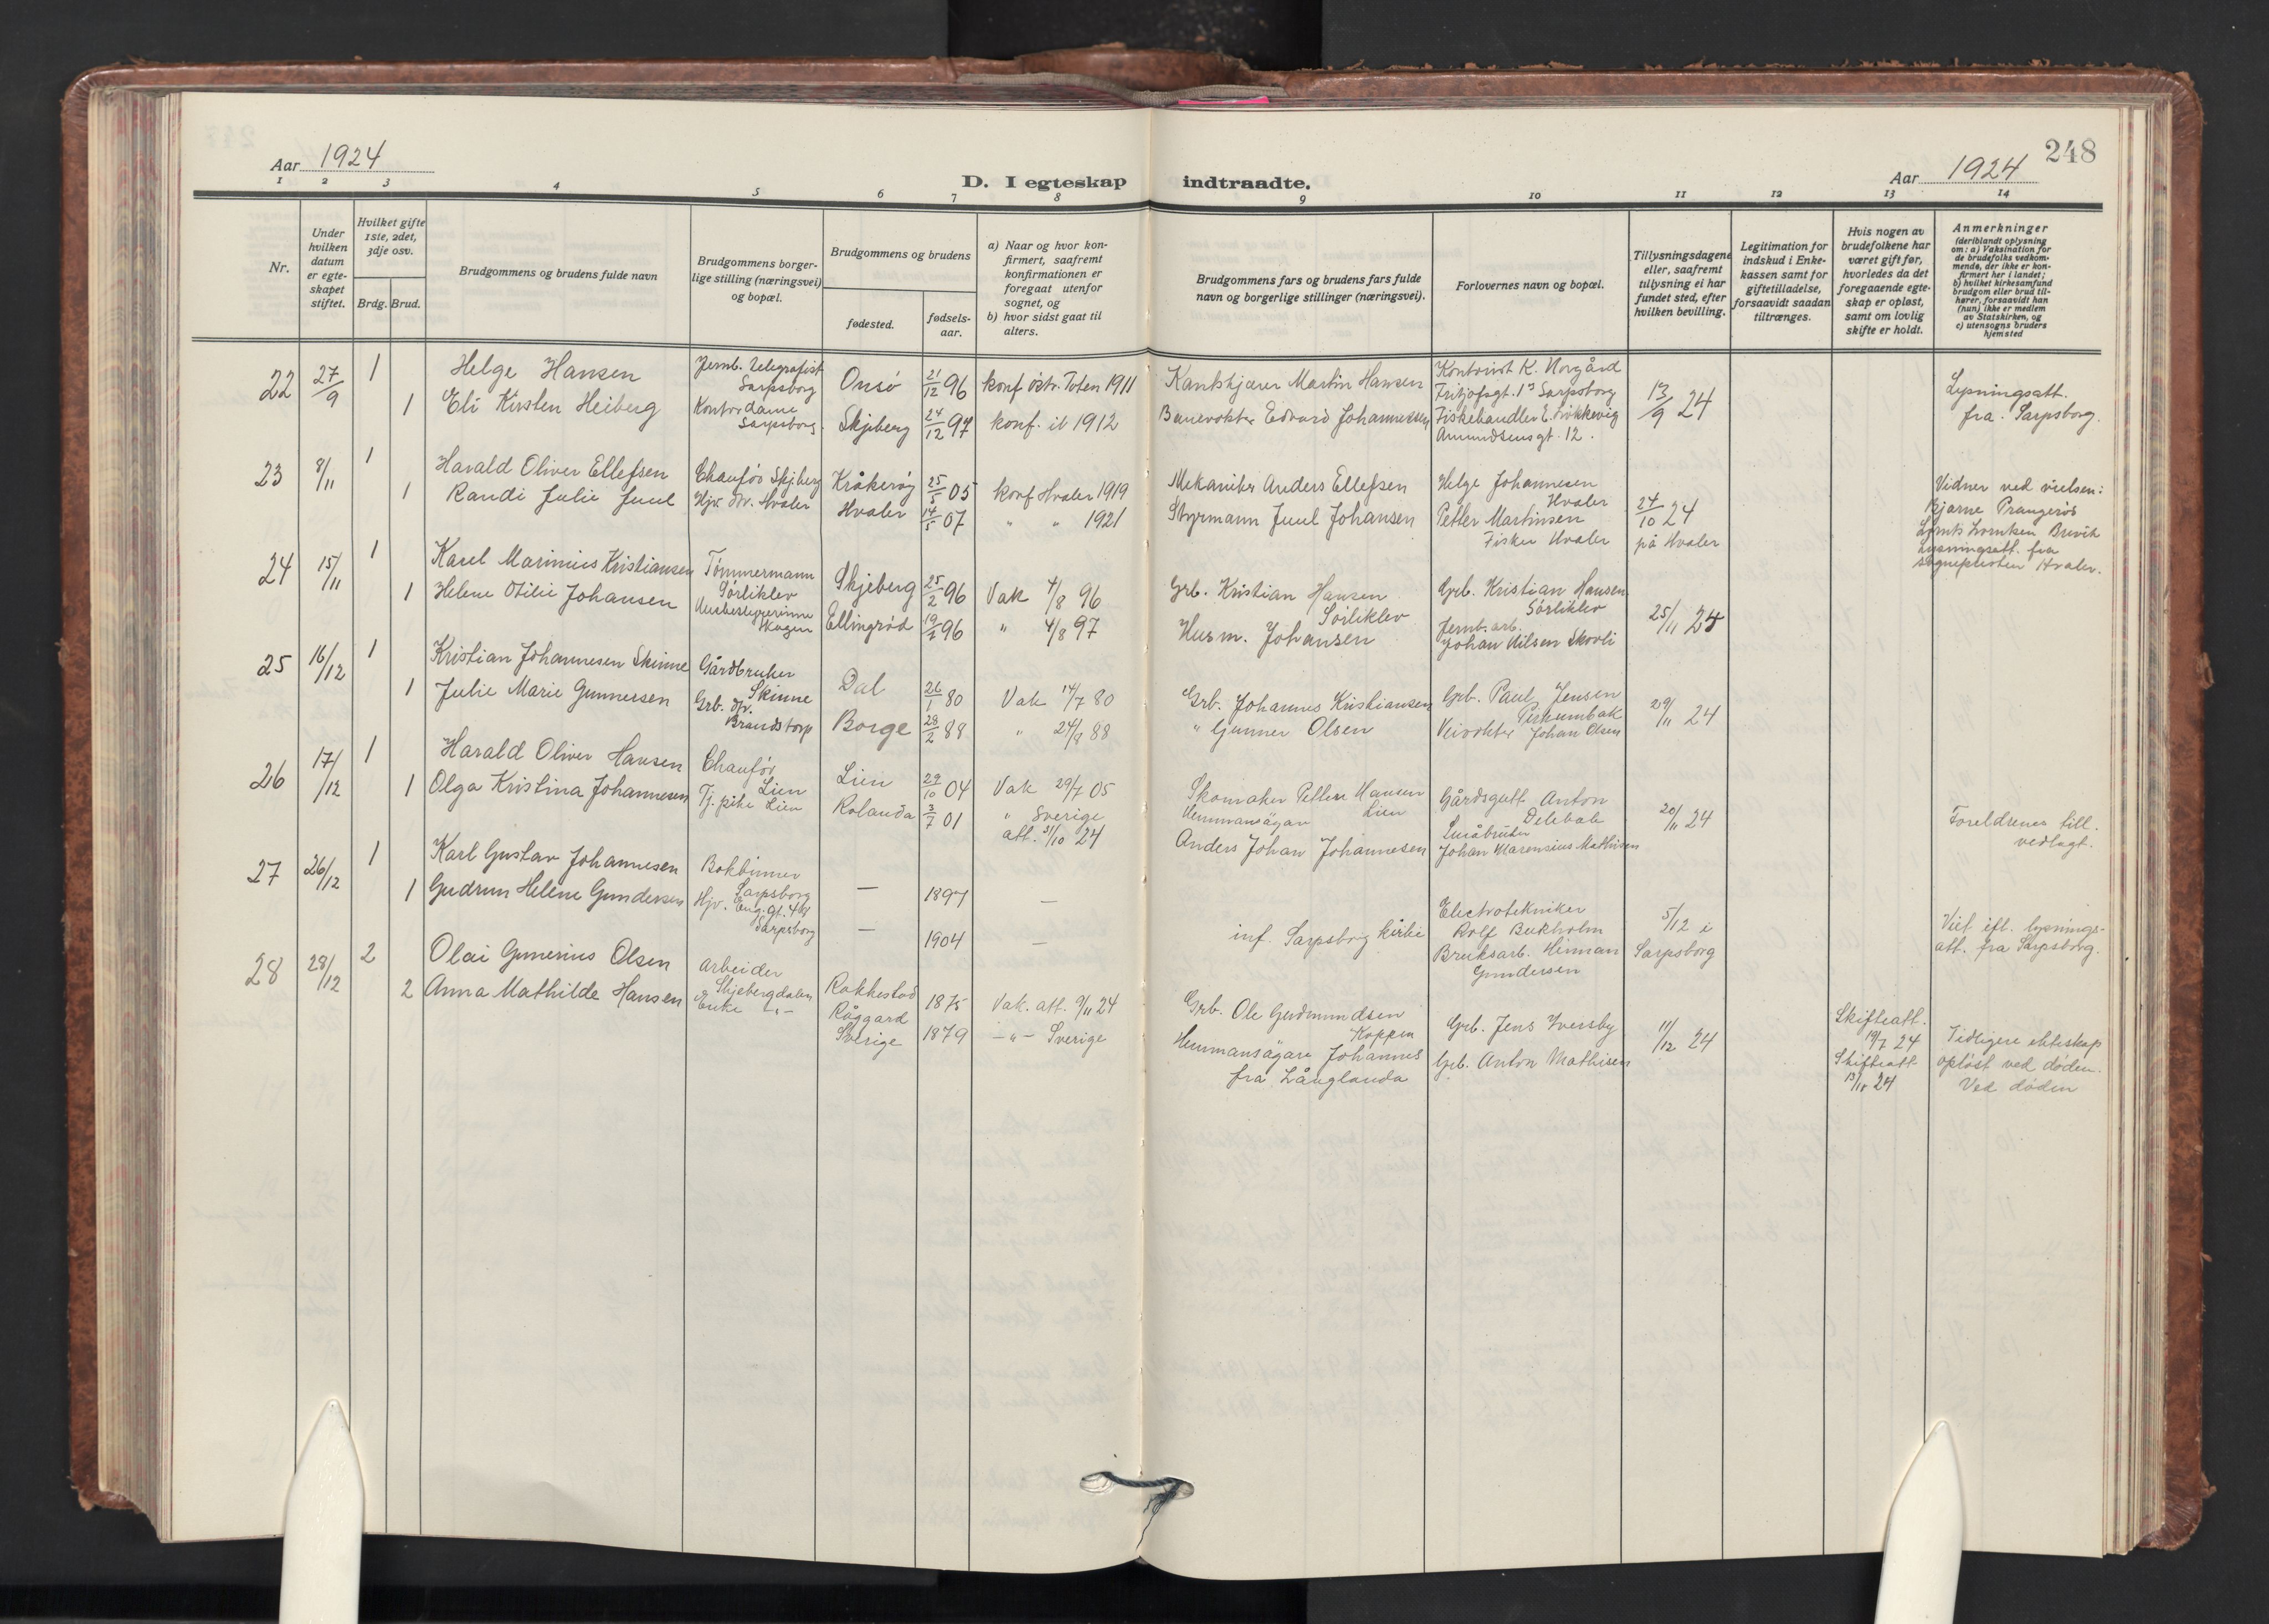 248
Aar 1924
D. I egteskap indtraadte.
Aar 1924
1 2 3 4 5 6 7 8 9 10 11 12 13 14
Nr.
Under
hvilken
datum
er egte-
skapet
stiftet.
Hvilket gifte
1ste, 2det,
3dje osv.
Brdg. Brud.
Brudgommens og brudens fulde navn
Brudgommens borger-
lige stilling (næringsvei)
og bopæl.
Brudgommens og brudens
fødested.
fødsels-
aar.
a) Naar og hvor kon-
firmert, saafremt
konfirmationen er
foregaat utenfor
sognet, og
b) hvor sidst gaat til
alters.
Brudgommens fars og brudens fars fulde
navn og borgerlige stillinger (næringsvei).
Forlovernes navn og bopæl.
Tillysningsdagene
eller, saafremt
tillysning ei har
fundet sted, efter
hvilken bevilling.
Legitimation for
indskud i Enke-
kassen samt for
giftetilladelse,
forsaavidt saadan
tiltrænges.
Hvis nogen av
brudefolkene har
været gift før,
hvorledes da det
foregaaende egte-
skap er opløst,
samt om lovlig
skifte er holdt.
Anmerkninger
(deriblandt oplysning
om: a) Vaksination for
de brudefolks vedkom-
mende, der ikke er kon-
firmert her i landet;
b) hvilket kirkesamfund
brudgom eller brud til-
hører, forsaavidt han
(hun) ikke er medlem
av Statskirken, og
c) utensogns bruders
hjemsted
22 27/9 1 Helge Hansen Jernb. Telegrafist
Sarpsborg Onsø 21/12 96 konf østr. Toten 1911 Martin Hansen Kontorist K. Norgård
Fritjofsgt. 13 Sarpsborg
1 Eli Kirsten Heiberg Kontordame
Sarpsborg. Skjeberg 24/12 97 konf. it 1912 Banevokter Edvard Johannessen Fiskehandler E.
Amundsensgt. 12.
13/9 24
Lysningsatt.
fra Sarpsborg.
23 8/11 1 Harald Oliver Ellefsen Chaufør Skjeberg Kråkerøy 25/5 05 konf Hvaler 1919 Mekaniker Anders Ellefsen Helge Johannesen
Hvaler
1 Randi Julie Juul Hjv. dtr. Hvaler Hvaler 14/5 07 " " 1921 Styrmann Juul Johansen Petter Martinsen
Fisker Hvaler
24/10 24
på Hvaler
Vidner ved vielsen:
Bjarne
Brevik
Lysningsatt. fra
sognepresten Hvaler.
24 15/11 1 Karel Marinius Kristiansen Tømmermann
Sørliklev Skjeberg 25/2 96 Vak 4/8 96 Grb. Kristian Hansen
Sørliklev Grb. Kristian Hansen
Sørliklev
1 Helene Otilie Johansen Ellingrød 96 " 4/8 97 Husm. Johansen Jernb. arb.
Johan Nilsen Skovli
25/11 24
25 16/12 1 Kristian Johannesen Skinne Gårdbruker
Skinne Dal 26/1 80 Vak 14/7 80 Grb. Johannes Kristiansen Grb. Paul Jensen
1 Julie Marie Gunnersen Grb. dtr.
Brandstorp Borge 28/2 88 " 24/9 88 " Gunner Olsen Veivokter Johan Olsen
29/11 24
26 17/12 1 Harald Oliver Hansen Chaufør
Lien Lien 29/10 04 Vak 29/7 05 Skomaker Petter Hansen
Lien Gårdsgutt Anton
1 Olga Kristina Johannesen Tj. pike Lien Rolanda 3/7 01 " Sverige
att. 31/10 24 Hemmansägar
Anders Johan Johannesen Småbruker
Johan Marensius Mathisen
20/11 24
Foreldrenes till.
vedlagt.
27 26/12 1 Karl Gustav Johannesen Bokbinner
Sarpsborg — 1897 —
1 Gudrun Helene Gundersen Hjv. Eng.gt. 48
Sarpsborg — 1904 —
inf. Sarpsborg kirke
Electrotekniker
Rolf Bukholm
Bruksarb. Herman
Gundersen
5/12 i
Sarpsborg
Viet eft. lysnings-
att. fra Sarpsborg.
28 28/12 2 Olai Gunerius Olsen Arbeider
Skjebergdalen Rakkestad 1875 Vak. att. 9/11 24 Grb. Ole Gudmundsen
Koppen Grb. Jens Iversby
2 Anna Mathilde Hansen Enke -"- Råggard
Sverige 1879 -"- Sverige Hemmansägare Johannes
fra Långlanda Grb. Anton Mathisen
11/12 24
Skifteatt.
19/7 24
Skifteatt.
13/11 24
Tidligere ekteskap
opløst ved døden.
Ved døden